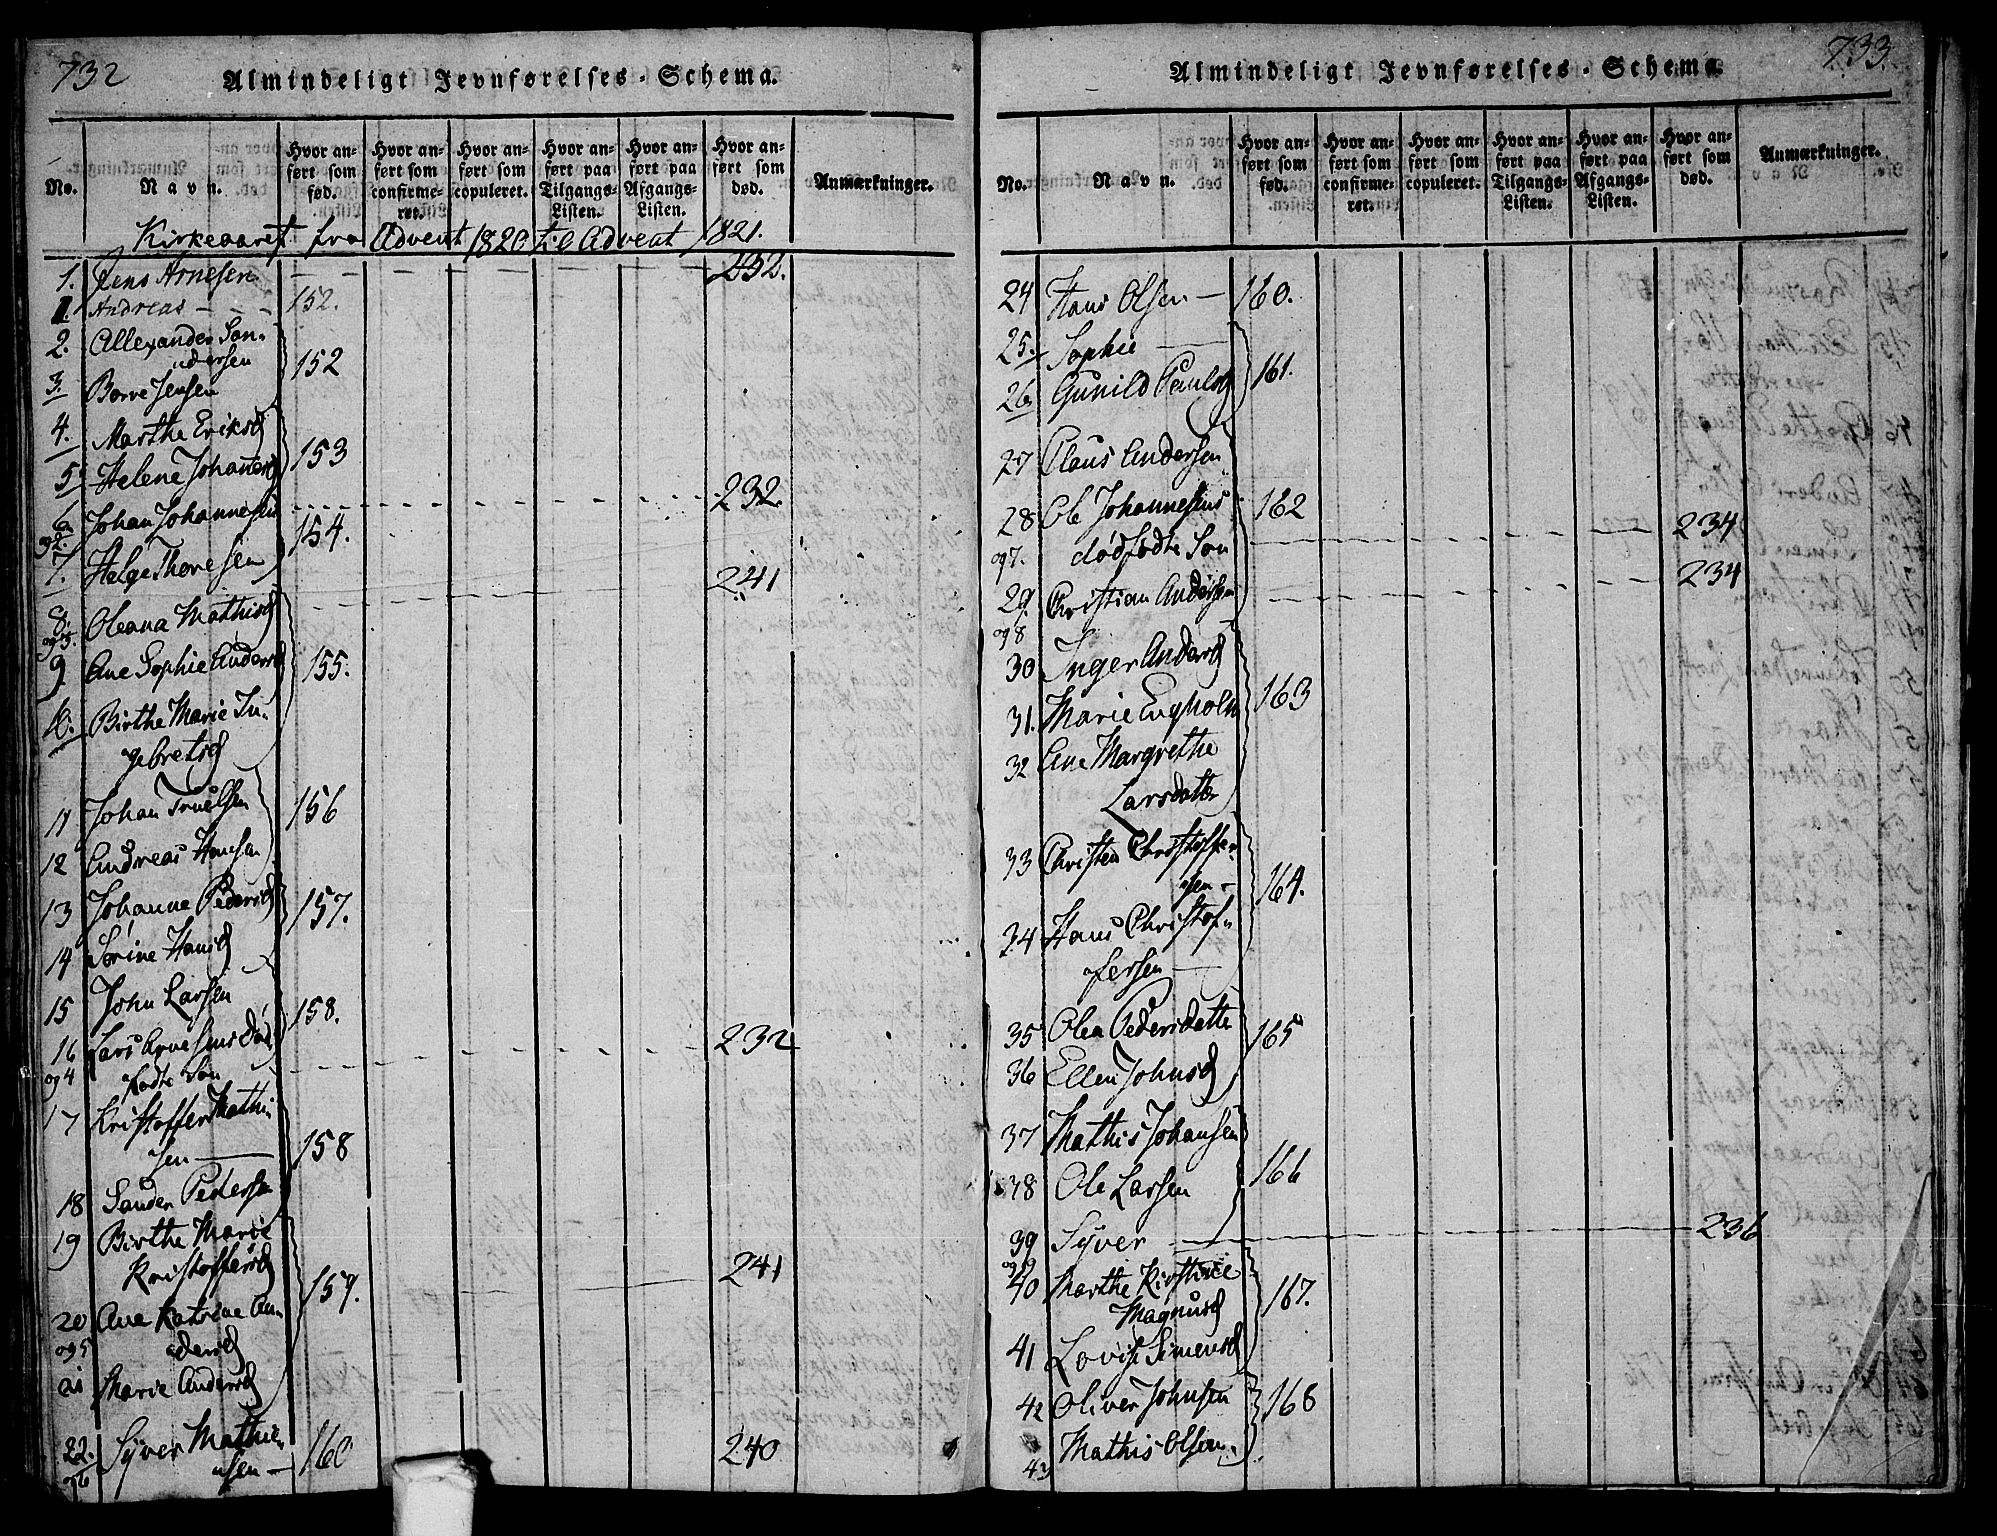 732
Almindeligt Jevnførelses-Schema.
No.
Navn.
Hvor anført som fød.
Hvor anført som confirmeret.
Hvor anført som copuleret.
Hvor anført paa Tilgangs-Listen.
Hvor anført paa Afgangs-Listen.
Hvor anført som død.
Anmærkninger.
Kirkeaaret fra Advent 1820 til Advent 1821.
1. Jens Arnesen 232.
1. Andreas 152.
2. Allexander Son-
dersen 152
3. Borre Jensen
4. Marthe Eriksd
5 Helene Johansd 153
6 Johan Johannesen 232
og 2.
7. Helge Thoresen 154. 241
8 Oleana Mathisd
og 3.
9 Ane Sophie Andersd 155.
10. Birthe Marie In-
gebretsd
11 Johan Truelsen 156
12 Andreas Hansen
13 Johanne Pedersd 157.
14 Sørine Hansd
15 John Larsen
16 Lars Arnesens død 158. 232
og 4 fødte Søn
17 Kristoffer Mathi-
sen 158
18 Sander Pedersen
19 Birthe Marie
Kristoffersd 159. 241
20 Ane Katrine An-
og 5 dersd
21 Marie Andersd
22. Syver Mathie- 160 240
og 6 sen
733
Almindeligt Jevnførelses-Schema.
No.
Navn.
Hvor anført som fød.
Hvor anført som confirmeret.
Hvor anført som copuleret.
Hvor anført paa Tilgangs-Listen.
Hvor anført paa Afgangs-Listen.
Hvor anført som død.
Anmærkninger.
24 Hans Olsen 160.
25. Sophie
26 Gunild Paulsd 161.
27 Claus Andersen
28 Ole Johannesens 162
og 7. dødfødte Søn 234
29 Christian Andersen 234
og 8
30 Inger Andersd
31. Marie Engholm 163
32 Ane Margrethe
Larsdatte
33 Christen Christoffer-
sen 164.
34 Hans Christof-
fersen
35 Olea Pedersdatte 165
36 Ellen Johnsd
37 Mathis Johansen
38 Ole Larsen 166
39 Syver 236
og 9
40 Marthe Kirstine
Magnusd 167.
41 Lovise Simensd
42 Oliver Johnsen 168
43 Mathis Olsen